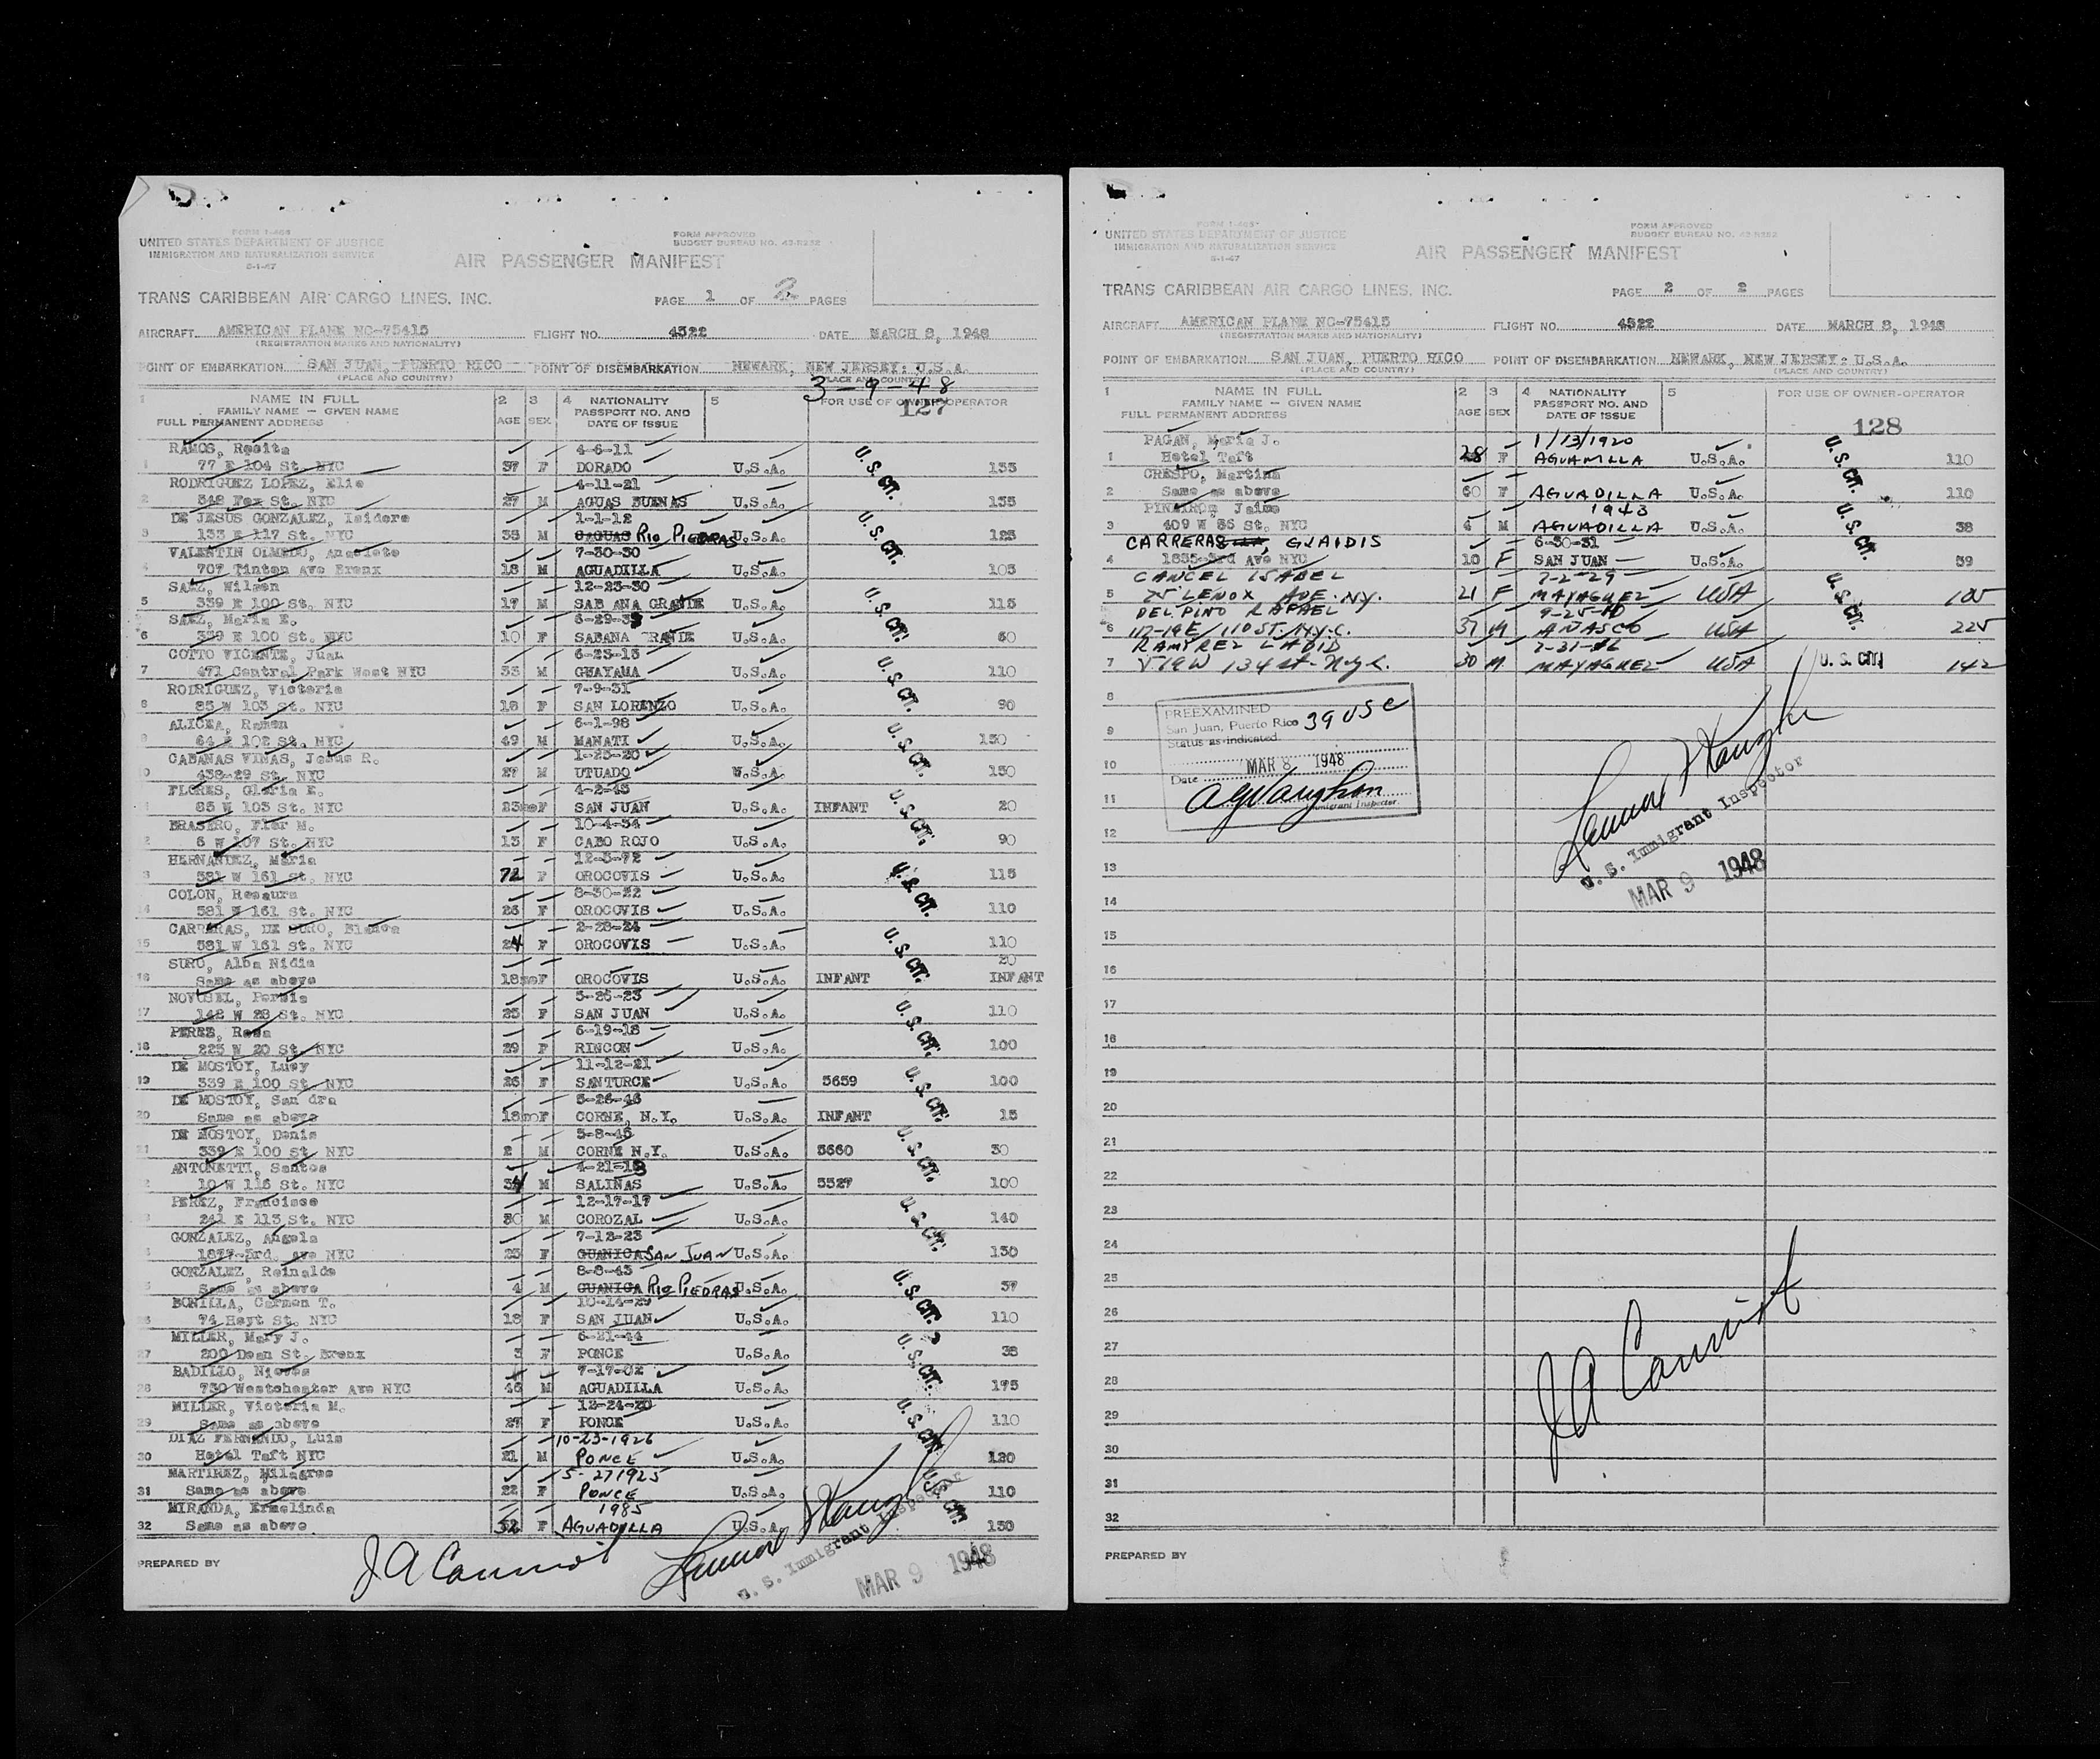 FORM I-466
UNITED STATES DEPARTMENT OF JUSTICE
IMMIGRATION AND NATURALIZATION SERVICE
8-1-47
FORM APPROVED
BUDGET BUREAU NO. 43-R232
AIR PASSENGER MANIFEST
TRANS CARIBBEAN AIR CARGO LINES, INC.
PAGE 1 OF 2 PAGES
AIRCRAFT AMERICAN PLANE NC-75415 FLIGHT NO. 4322 DATE MARCH 8, 1948
(REGISTRATION MARKS AND NATIONALITY)
POINT OF EMBARKATION SAN JUAN, PUERTO RICO POINT OF DISEMBARKATION NEWARK, NEW JERSEY: U.S.A.
(PLACE AND COUNTRY) (PLACE AND COUNTRY)
3-9-48
1 NAME IN FULL 2 3 4 NATIONALITY 5 FOR USE OF OWNER-OPERATOR
FAMILY NAME — GIVEN NAME PASSPORT NO. AND 127
FULL PERMANENT ADDRESS AGE SEX DATE OF ISSUE
RAMOS, Rosita 4-6-11
1 77 E 104 St. NYC 37 F DORADO U.S.A. U.S. CIT. 135
RODRIGUEZ LOPEZ, Elie 4-11-21
2 548 Fox St. NYC 27 M AGUAS BUENAS U.S.A. 135
DE JESUS GONZALEZ, Isidore 1-1-12
3 133 E 117 St. NYC 35 M CAGUAS RIO PIEDRAS U.S.A. U.S. CIT. 125
VALENTIN OLMEDO, Anacleto 7-30-30
4 707 Tinton Ave Bronx 18 M AGUADILLA U.S.A. 105
SAEZ, Wilson 12-23-30
5 339 E 100 St. NYC 17 M SABANA GRANDE U.S.A. U.S. CIT. 115
SAEZ, Maria E. 6-29-38
6 339 E 100 St. NYC 10 F SABANA GRANDE U.S.A. 60
COTTO VICENTE, Juan 6-23-15
7 471 Central Park West NYC 33 M GUAYAMA U.S.A. U.S. CIT. 110
RODRIGUEZ, Victoria 7-9-31
8 85 W 103 St. NYC 16 F SAN LORENZO U.S.A. 90
ALICEA, Ramon 6-1-98
9 64 E 102 St. NYC 49 M MANATI U.S.A. U.S. CIT. 150
CABANAS VINAS, Jesus R. 1-25-20
10 438-29 St. NYC 27 M UTUADO U.S.A. 150
FLORES, Gloria E. 4-2-45
85 W 103 St. NYC 23mo F SAN JUAN U.S.A. INFANT U.S. CIT. 20
BRASERO, Flor M. 10-4-34
2 6 W 107 St. NYC 13 F CABO ROJO U.S.A. 90
HERNANDEZ, Maria 12-3-72
3 581 W 161 st. NYC 72 F OROCOVIS U.S.A. U.S. CIT. 115
COLON, Rosaura 8-30-22
14 581 W 161 St. NYC 26 F OROCOVIS U.S.A. 110
CARRERAS, DE SURO, Blanca 2-28-24
15 581 W 161 St. NYC 24 F OROCOVIS U.S.A. U.S. CIT. 110
SURO, Alba Nidia 20
16 Same as above 18mo F OROCOVIS U.S.A. INFANT INFANT
NOVOSEL, Persis 5-26-23
17 142 W 28 St. NYC 25 F SAN JUAN U.S.A. U.S. CIT. 110
PEREZ, Rosa 6-19-18
18 225 W 20 St. NYC 29 F RINCON U.S.A. 100
DE MOSTOY, Lucy 11-12-21
19 339 E 100 St. NYC 26 F SANTURCE U.S.A. 5659 U.S. CIT. 100
DE MOSTOY, San dra 5-26-46
20 Same as above 18mo F CORNE, N.Y. U.S.A. INFANT 15
DE MOSTOY, Denis 5-8-45
21 339 E 100 St. NYC 2 M CORNE N.Y. U.S.A. 5660 U.S. CIT. 30
ANTONETTI, Santos 4-21-13
2 10 W 116 St. NYC 34 M SALINAS U.S.A. 5527 100
PEREZ, Francisco 12-17-17
3 241 E 113 St. NYC 30 M COROZAL U.S.A. U.S. CIT. 140
GONZALEZ, Angela 7-12-23
1877-3rd. Ave NYC 25 F GUANICA SAN JUAN U.S.A. 130
GONZALEZ, Reinaldo 8-8-43
Same as above 4 M GUANICA RIO PIEDRAS U.S.A. U.S. CIT. 37
BONILLA, Carmen T. 10-14-29
26 74 Hoyt St. NYC 18 F SAN JUAN U.S.A. 110
MILLER, Mary J. 6-21-44
27 200 Dean St. Bronx 3 F PONCE U.S.A. U.S. CIT. 38
BADILLO, Nieves 7-17-02
28 730 Westchester Ave NYC 46 M AGUADILLA U.S.A. 175
MILLER, Victoria M. 12-24-20
29 Same as above 27 F PONCE U.S.A. U.S. CIT. 110
DIAZ FERNANDO, Luis 10-23-1926
30 Hotel Taft NYC 21 M PONCE U.S.A. 120
MARTIREZ, Milagros 5-27 1925
31 Same as above 22 F PONCE U.S.A. U.S. CIT. 110
MIRANDA, Ermelinda
32 Same as above F AGUADILLA U.S.A. 130
PREPARED BY
U. S. Immigrant Inspector
MAR 9 1948
UNITED STATES DEPARTMENT OF JUSTICE
IMMIGRATION AND NATURALIZATION SERVICE
8-1-47
FORM APPROVED
BUDGET BUREAU NO. 43-R232
AIR PASSENGER MANIFEST
TRANS CARIBBEAN AIR CARGO LINES, INC.
PAGE 2 OF 2 PAGES
AIRCRAFT AMERICAN PLANE NC-75415 FLIGHT NO. 4322 DATE MARCH 8, 1948
(REGISTRATION MARKS AND NATIONALITY)
POINT OF EMBARKATION SAN JUAN, PUERTO RICO POINT OF DISEMBARKATION NEWARK, NEW JERSEY: U.S.A.
(PLACE AND COUNTRY) (PLACE AND COUNTRY)
1 NAME IN FULL 2 3 4 NATIONALITY 5 FOR USE OF OWNER-OPERATOR
FAMILY NAME — GIVEN NAME PASSPORT NO. AND
FULL PERMANENT ADDRESS AGE SEX DATE OF ISSUE 128
PAGAN, Maria J. 1/13/1920
1 Hotel Taft 28 F AGUADILLA U.S.A. U.S. CIT. 110
CRESPO, Martina
2 Same as above 60 F AGUADILLA U.S.A. 110
Jaime 1943
3 409 W 36 St. NYC 4 M AGUADILLA U.S.A. U.S. CIT. 38
CARRERAS, GLAIDIS 6-30-31
4 1835-3rd Ave NYC 10 F SAN JUAN U.S.A. 59
CANCEL ISABEL 7-2-27
5 LENOX AVE. N.Y. 21 F MAYAGUEZ USA U.S. CIT. 105
DEL PINO RAFAEL 9-25-10
6 112-19 E/110 ST. N.Y.C. 37 M ANASCO USA 225
RAMIREZ LADID
7 W 134 st. N.Y.C. 30 M MAYAGUEZ USA U.S. CIT. 142
8
9
10
11
12
13
14
15
16
17
18
19
20
21
22
23
24
25
26
27
28
29
30
31
32
PREEXAMINED
San Juan, Puerto Rico 39 USC
Status as indicated
Date MAR 8 1948
A G Vaughan
Immigrant Inspector
U. S. Immigrant Inspector
MAR 9 1948
PREPARED BY